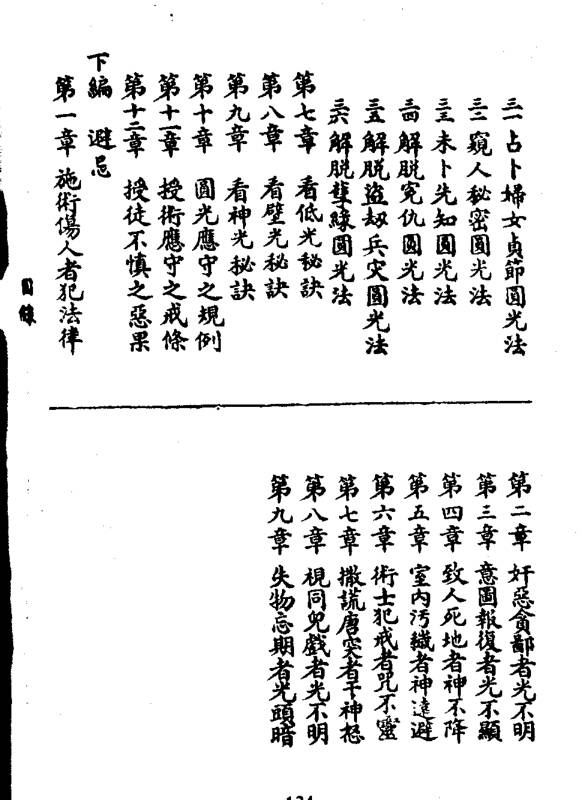 三一占卜婦女貞節圓光法
三二窺人秘密圓光法
三三未卜先知圓光法
三四解脱冤仇圓光法
三五解脱盜劫兵灾圓光法
三六解脱孽緣圓光法
第七章 看低光秘訣
第八章 看壁光秘訣
第九章 看神光秘訣
第十章 圓光應守之規例
第十一章 授術應守之戒條
第十二章 授徒不慎之惡果
下編 避忌
第一章 施術傷人者犯法律
目錄
第二章 奸惡貪鄙者光不明
第三章 意圖報復者光不顯
第四章 致人死地者神不降
第五章 室內污穢者神遠避
第六章 術士犯戒者咒不靈
第七章 撒謊唐突者干神怒
第八章 視同兒戲者光不明
第九章 失物忘期者光頭暗
134